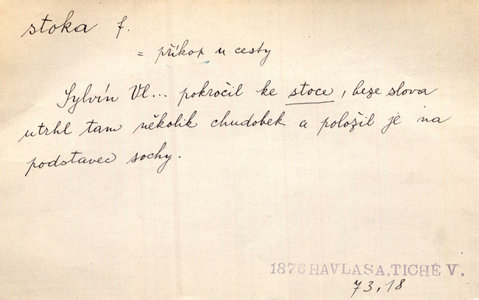 stoka f.
= příkop u cesty
Sylvín Vl... pokročil ke stoce, beze slova
utrhl tam několik chudobek a položil je na
podstavec sochy.
1876 HAVLASA, TICHÉ V.
73,18